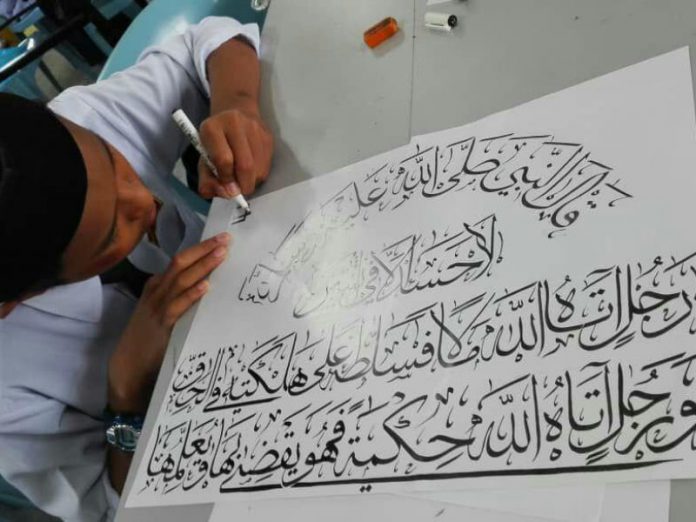 قال النبي صلى الله عليه
لا حسد إلا في
رجل آتاه الله مالا فسلطه على هلكته في الحق
ورجل آتاه الله حكمة فهو يقضي بها ويعلمها